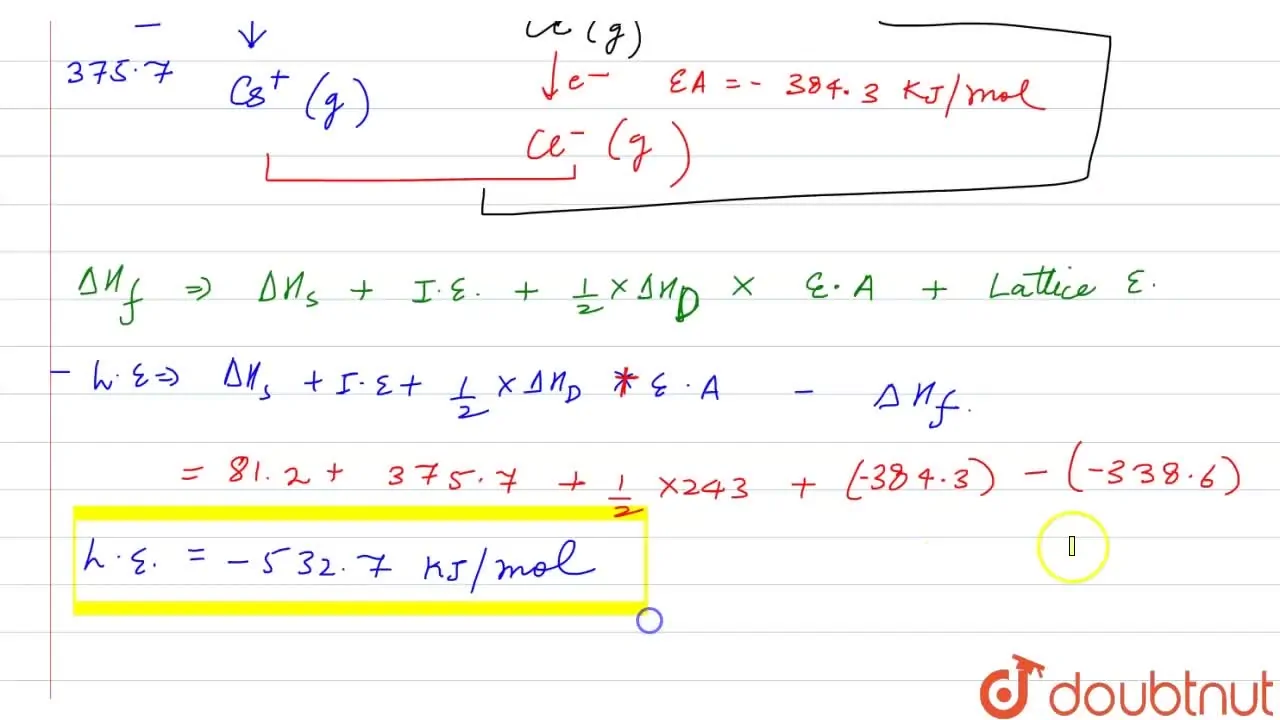 375.7
Cs⁺ (g)
Cl (g)
↓ e⁻ EA = - 384.3 KJ/mol
Cl⁻ (g)
ΔHf ⇒ ΔHs + I.E. + 1/2 × ΔHD × E.A + Lattice E.
- L.E ⇒ ΔHs + I.E + 1/2 × ΔHD + E.A - ΔHf.
= 81.2 + 375.7 + 1/2 × 243 + (-384.3) - (-338.6)
L.E. = - 532.7 KJ/mol
doubtnut